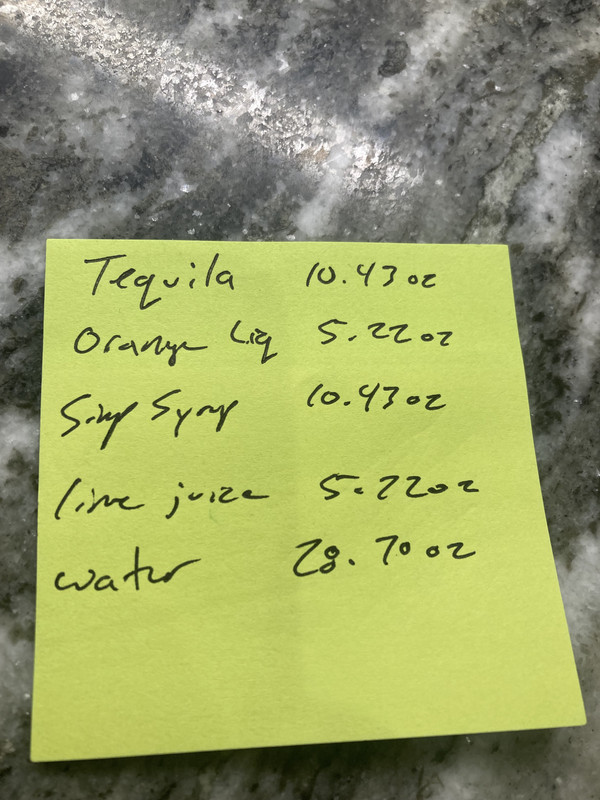 Tequila 10.43 oz
Orange Liq 5.22 oz
Simp Syrup 10.43 oz
lime juice 5.22 oz
water 28.70 oz